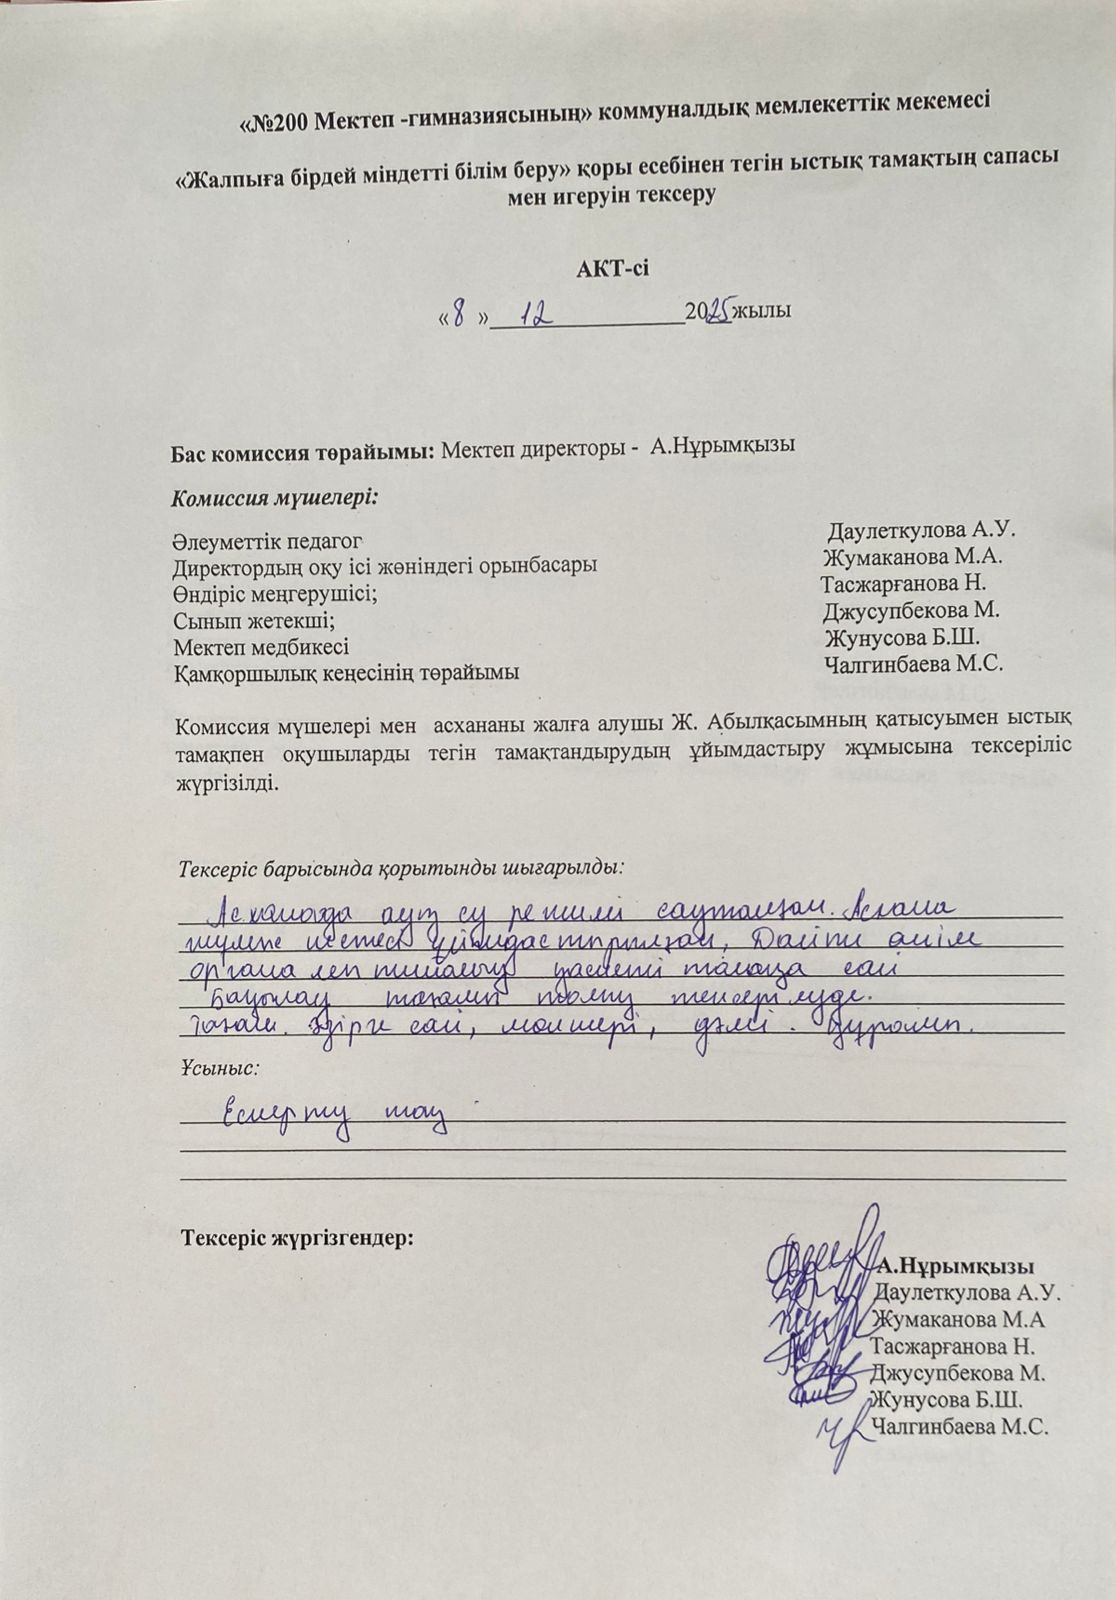 «№200 Мектеп -гимназиясының» коммуналдық мемлекеттік мекемесі
«Жалпыға бірдей міндетті білім беру» қоры есебінен тегін ыстық тамақтың сапасы
мен игеруін тексеру
АКТ-сі
«8 » 12 2025жылы
Бас комиссия төрайымы: Мектеп директоры - А.Нұрымқызы
Комиссия мүшелері:
Әлеуметтік педагог Даулеткулова А.У.
Директордың оқу ісі жөніндегі орынбасары Жумаканова М.А.
Өндіріс меңгерушісі; Тасжарғанова Н.
Сынып жетекші; Джусупбекова М.
Мектеп медбикесі Жунусова Б.Ш.
Қамқоршылық кеңесінің төрайымы Чалгинбаева М.С.
Комиссия мүшелері мен асхананы жалға алушы Ж. Абылқасымның қатысуымен ыстық
тамақпен оқушыларды тегін тамақтандырудың ұйымдастыру жұмысына тексеріліс
жүргізілді.
Тексеріс барысында қорытынды шығарылды:
Асханада ауыз су сақталған.
ұйымдастырылған, Дайын
сай
Бақылау тағамын толық тексерілуде.
Тағам әзірге сай, мөлшері, дәмі. дұрыс
Ұсыныс:
Ескерту жоқ
Тексеріс жүргізгендер:
А.Нұрымқызы
Даулеткулова А.У.
Жумаканова М.А
Тасжарғанова Н.
Джусупбекова М.
Жунусова Б.Ш.
Чалгинбаева М.С.